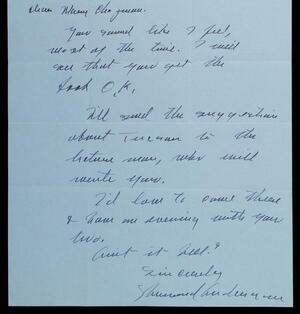 Dear Chapman.
You sound like I feel,
most of the time. I will
see that you get the
book O.K.
I'll send the suggestion
about Tucson to the
lecture man, who will
write you.
I'd love to come there
& have an evening with you
two.
Aint it hell?
Sincerely
Sherwood Anderson